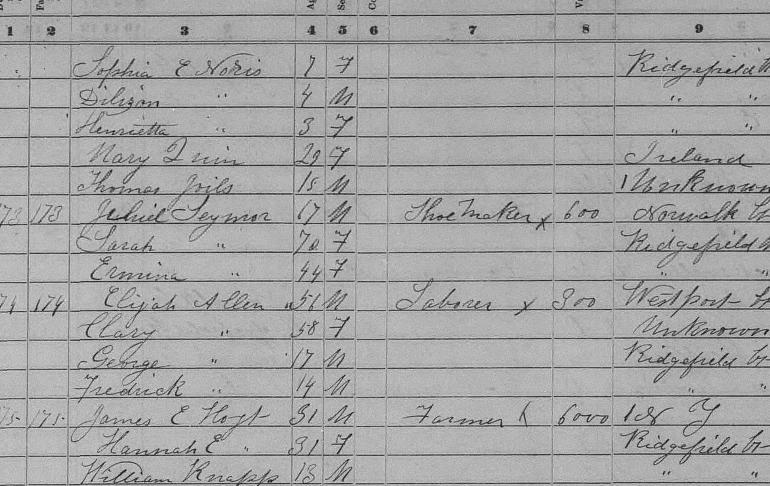 1 2 3 4 5 6 7 8 9
Sophia E Noris 7 F Ridgefield
" 4 M " "
Henrietta " 3 F " "
Mary Quin 29 F Ireland
Thomas 15 M Unknown
173 Jehiel Seymor 67 M Shoe Maker x 600 Norwalk
Sarah " 70 F Ridgefield
Ermina " 44 F " "
174 Elijah Allen " 56 M Laborer x 300 Westport
Clary " 58 F Unknown
George " 17 M Ridgefield
Fredrick " 14 M " "
175 James E Hoyt 31 M Farmer 6000 N Y
Hannah E " 31 F Ridgefield
William Knapp 13 M " "